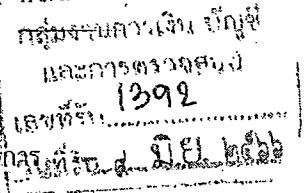 กลุ่มงานการเงิน บัญชี
และการตรวจสอบ
เลขที่รับ 1392
วันที่รับ ๔ มิ.ย. ๒๕๖๖